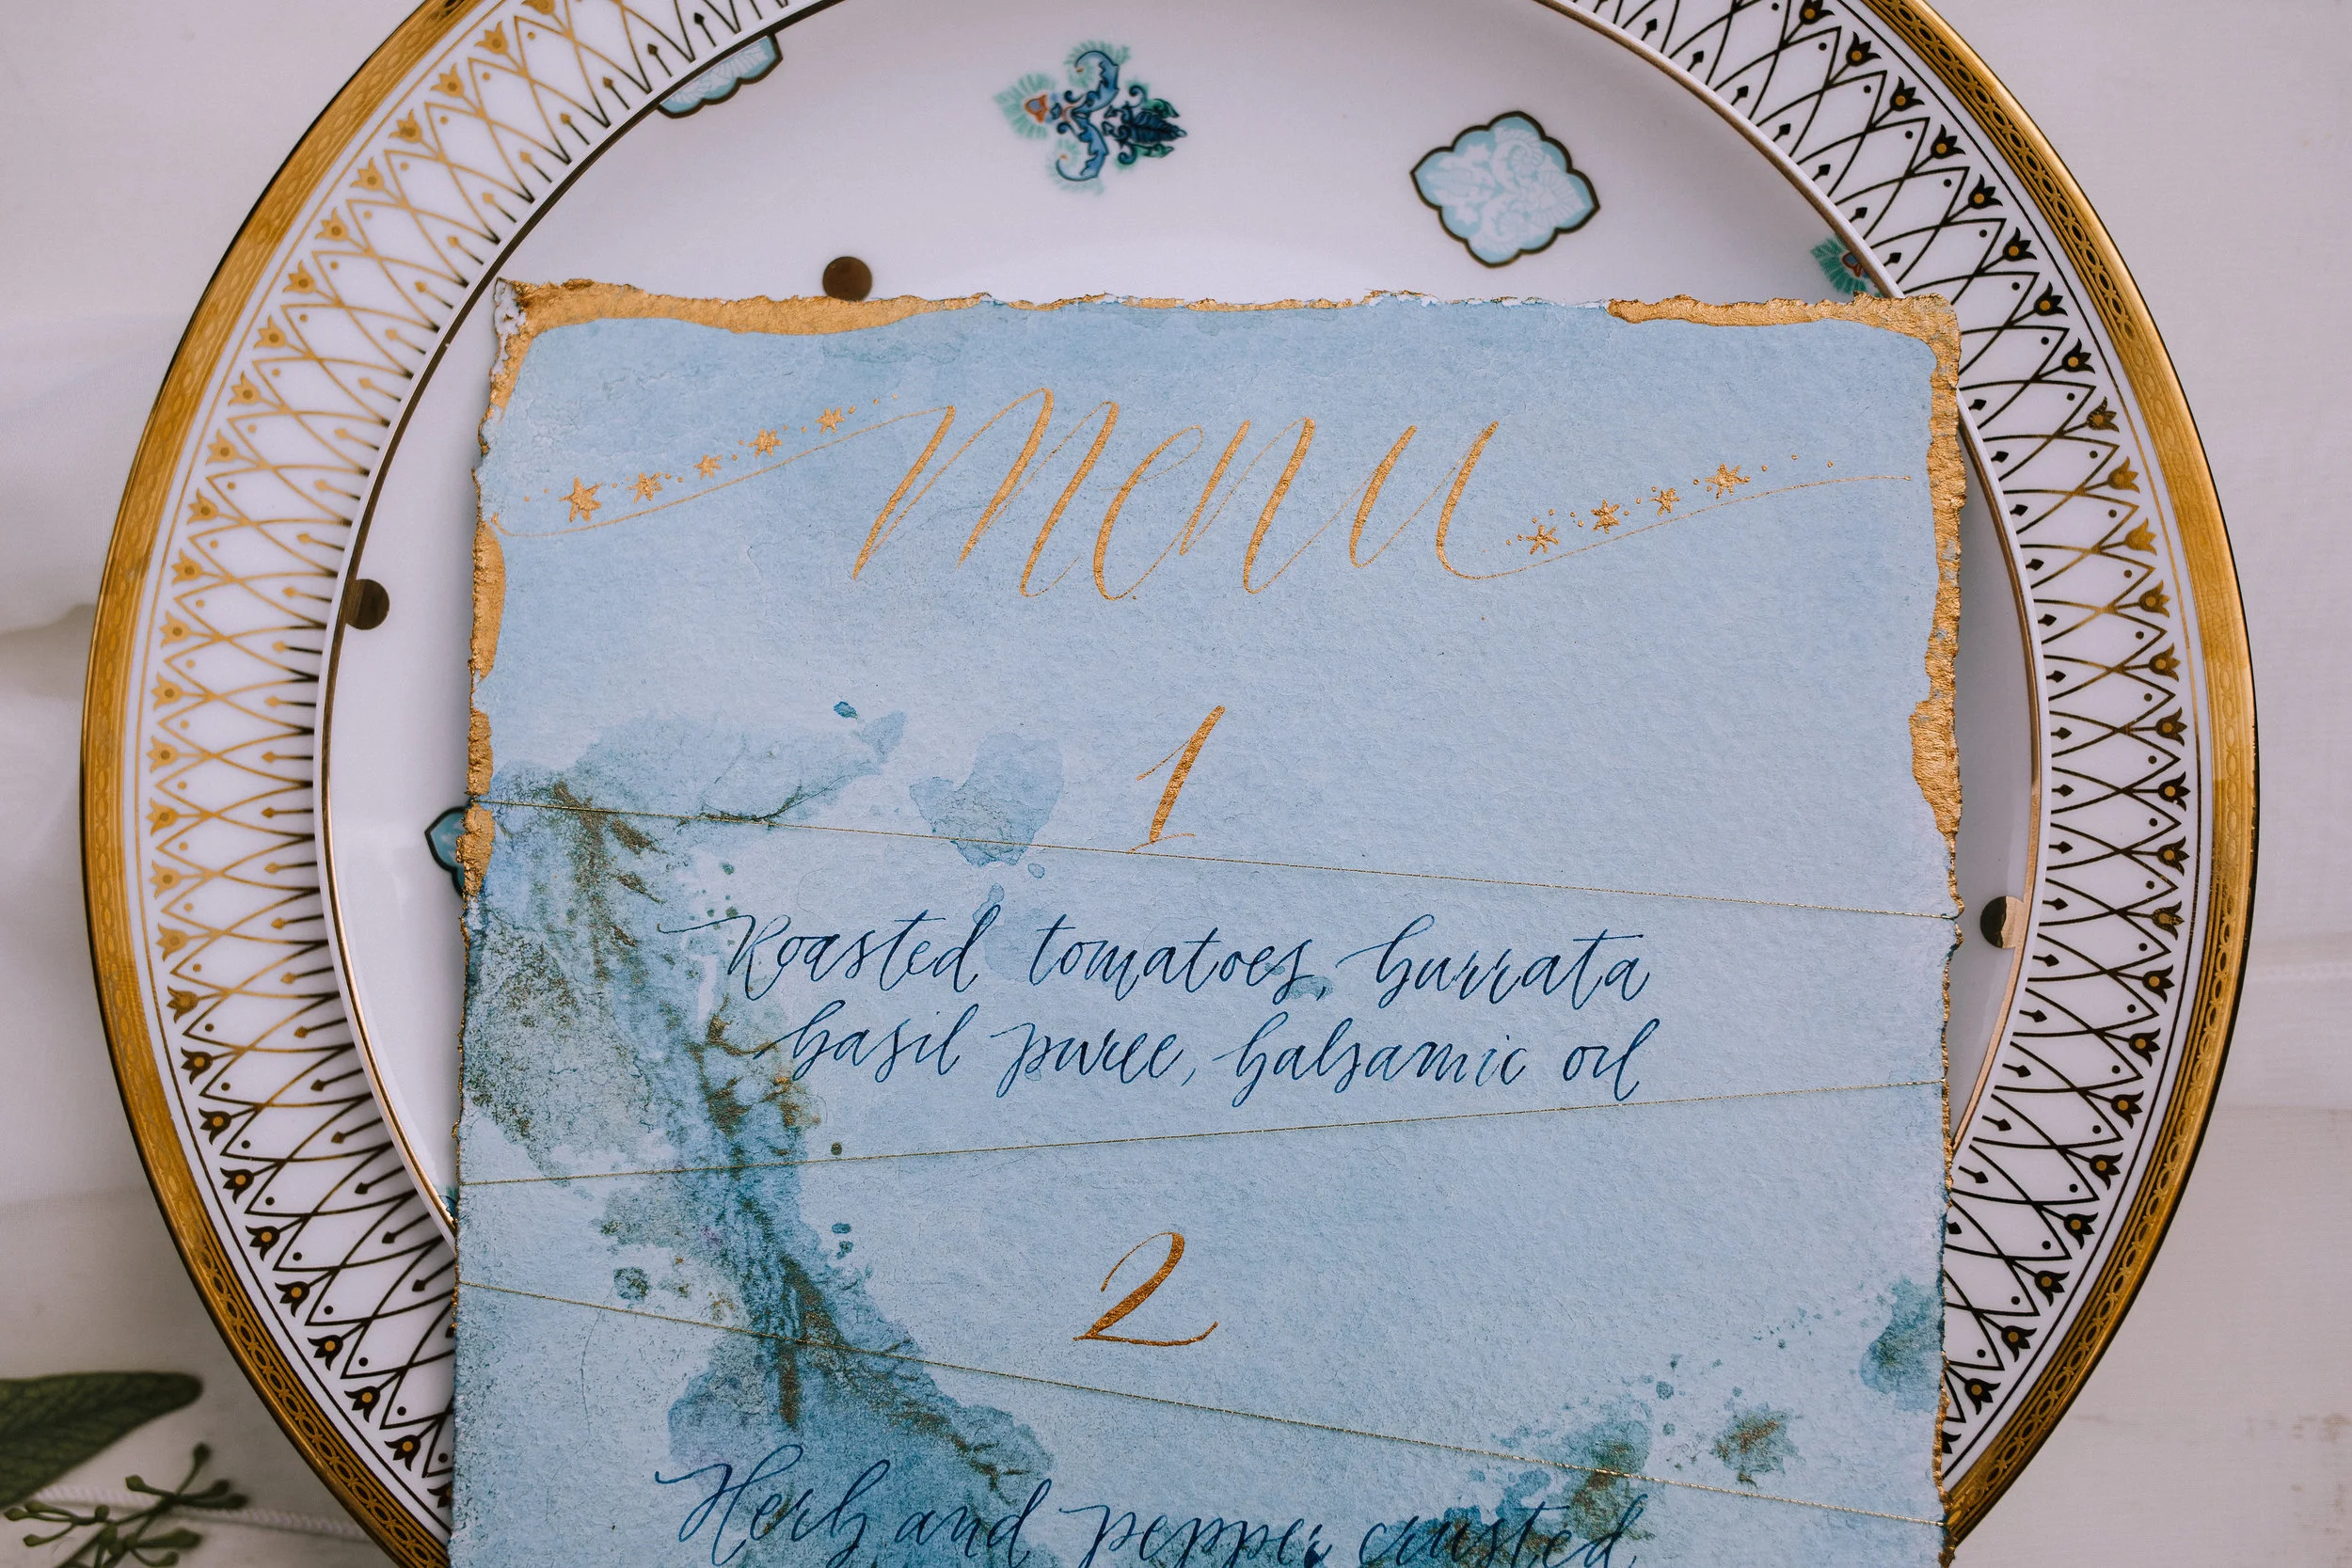 Menu
1
Roasted tomatoes, burrata
basil puree, balsamic oil
2
Herb and pepper crusted